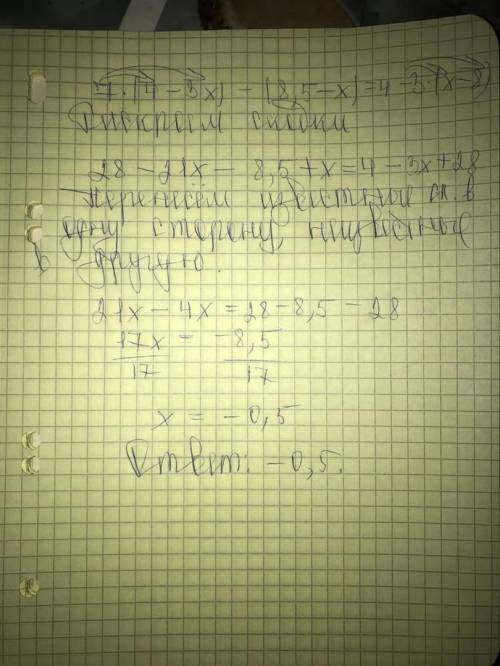 7·(4-3x) - (8,5-x)=4-3·(x-8)
Раскроем скобки
28-21x- 8,5+x=4-3x+28
Перенесём известные сл. в
одну сторону, неизвестные
в другую.
21x-4x=28-8,5-28
17x = -8,5
17 17
x = -0,5
Ответ: -0,5.